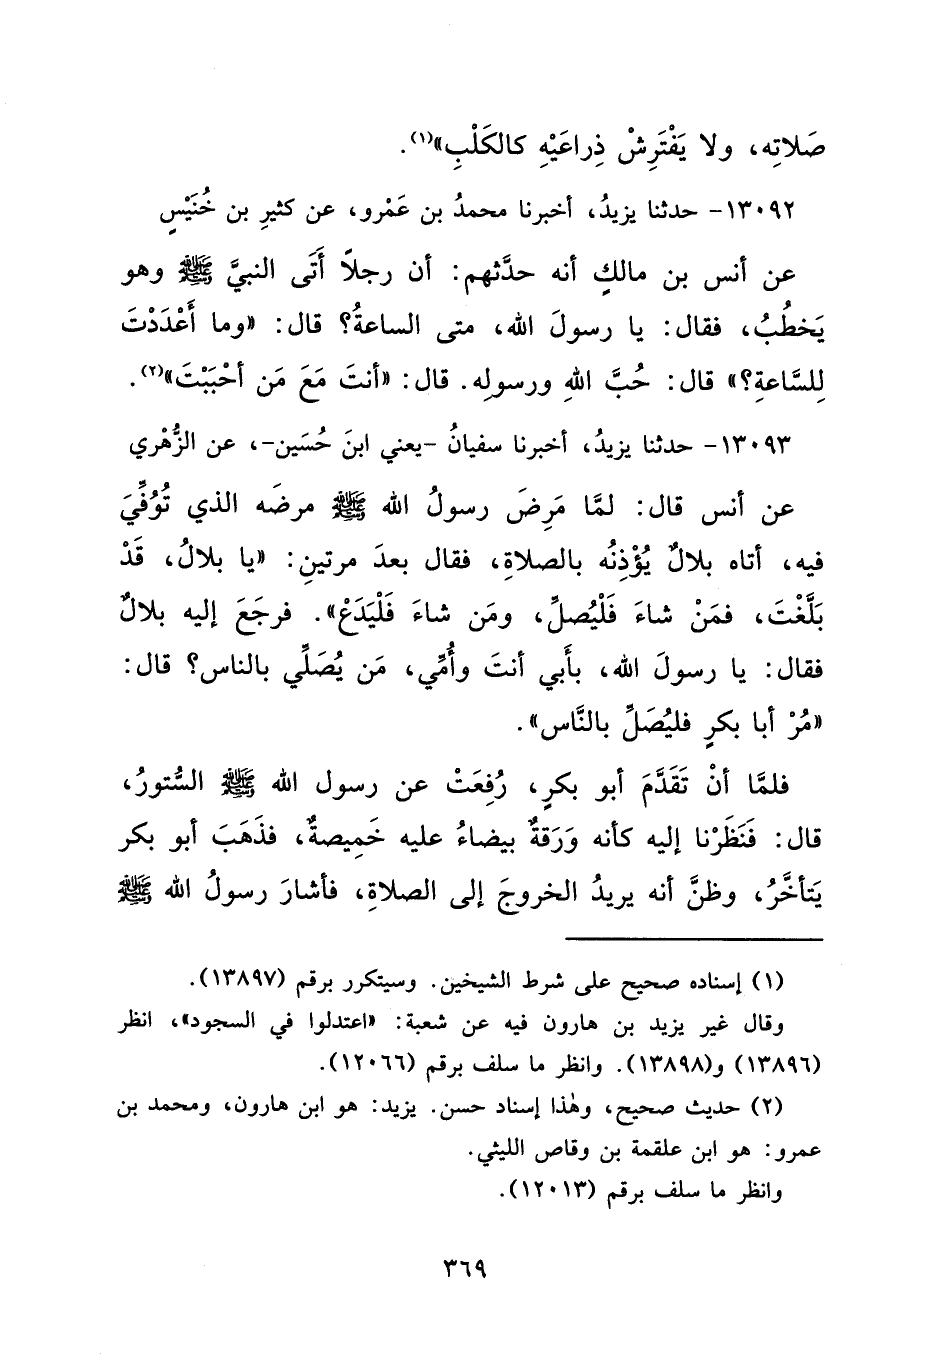 صَلاتِه، ولا يَفْتَرِشْ ذِراعَيْهِ كالكَلْبِ»(١).
١٣٠٩٢- حدثنا يزيدُ، أخبرنا محمدُ بن عَمْرو، عن كثيرِ بن خُنَيْسٍ
عن أنس بن مالكٍ أنه حدَّثهم: أن رجلاً أَتَى النبيَّ ﷺ وهو
يَخطُبُ، فقال: يا رسولَ الله، متى الساعةُ؟ قال: «وما أَعْدَدْتَ
لِلسَّاعةِ؟» قال: حُبَّ اللهِ ورسولِه. قال: «أنتَ مَعَ مَن أحْبَبْتَ»(٢).
١٣٠٩٣- حدثنا يزيدُ، أخبرنا سفيانُ -يعني ابنَ حُسَين-، عن الزُّهْري
عن أنس قال: لمَّا مَرِضَ رسولُ الله ﷺ مرضَه الذي تُوُفِّيَ
فيه، أتاه بلالٌ يُؤْذِنُه بالصلاةِ، فقال بعدَ مرتينِ: «يا بلالُ، قَدْ
بَلَّغْتَ، فمَنْ شاءَ فَلْيُصلِّ، ومَن شاءَ فَلْيَدَعْ». فرجَعَ إليه بلالٌ
فقال: يا رسولَ الله، بأَبي أنتَ وأُمِّي، مَن يُصَلِّي بالناس؟ قال:
«مُرْ أبا بكرٍ فليُصَلِّ بالنَّاس».
فلمَّا أنْ تَقَدَّمَ أبو بكرٍ، رُفِعَتْ عن رسول الله ﷺ السُّتورُ،
قال: فَنَظَرْنا إليه كأنه وَرَقةٌ بيضاءُ عليه خَمِيصةٌ، فذَهَبَ أبو بكر
يَتأخَّرُ، وظنَّ أنه يريدُ الخروجَ إلى الصلاةِ، فأشارَ رسولُ الله ﷺ
(١) إسناده صحيح على شرط الشيخين. وسيتكرر برقم (١٣٨٩٧).
وقال غير يزيد بن هارون فيه عن شعبة: «اعتدلوا في السجود»، انظر
(١٣٨٩٦) و(١٣٨٩٨). وانظر ما سلف برقم (١٢٠٦٦).
(٢) حديث صحيح، وهٰذا إسناد حسن. يزيد: هو ابن هارون، ومحمد بن
عمرو: هو ابن علقمة بن وقاص الليثي.
وانظر ما سلف برقم (١٢٠١٣).
٣٦٩